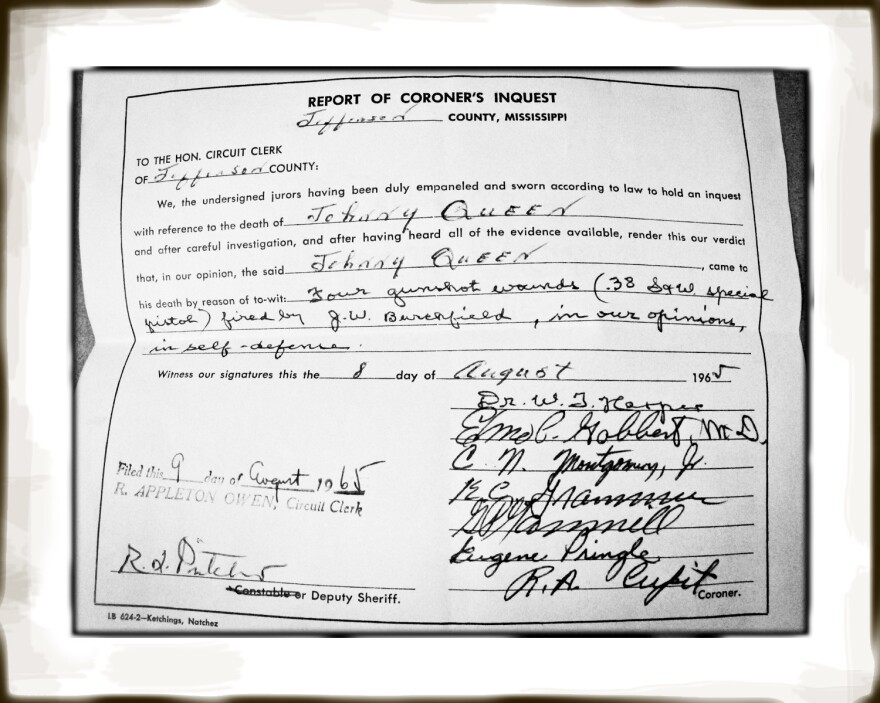 REPORT OF CORONER'S INQUEST
Jefferson COUNTY, MISSISSIPPI
TO THE HON. CIRCUIT CLERK
OF Jefferson COUNTY:
We, the undersigned jurors having been duly empaneled and sworn according to law to hold an inquest
with reference to the death of Johnny QUEEN
and after careful investigation, and after having heard all of the evidence available, render this our verdict
that, in our opinion, the said Johnny QUEEN, came to
his death by reason of to-wit: Four gunshot wounds (.38 S&W special
pistol) fired by J.W. Burchfield, in our opinions,
in self-defense.
Witness our signatures this the 8 day of August 1965
Dr. W. T. Harper
Gobbert, M.D.
C. N. Montgomery, Jr.
Filed this 9 day of August 1965
R. APPLETON OWEN, Circuit Clerk
Eugene Pringle
R.A. Cupit
Coroner.
Constable or Deputy Sheriff.
LB 624-2—Ketchings, Natchez